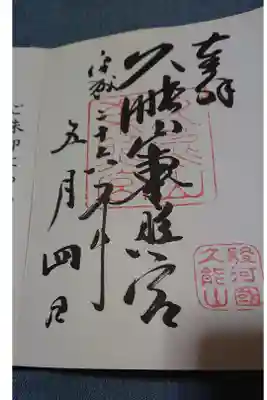 奉拝
久能山東照宮
平成二十六年
五月四日
駿河國
久能山